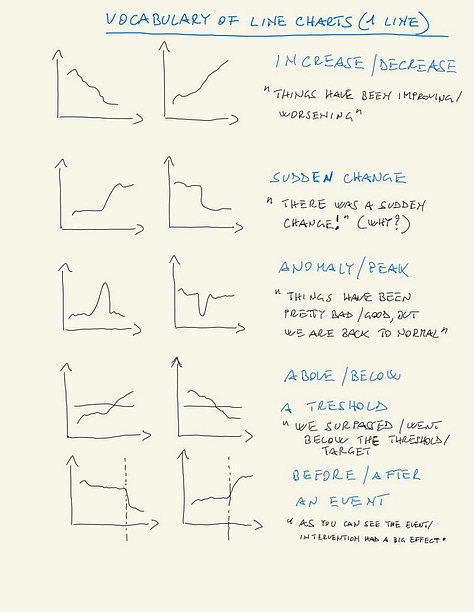 VOCABULARY OF LINE CHARTS (1 LINE)
INCREASE/DECREASE
"THINGS HAVE BEEN IMPROVING/
WORSENING"
SUDDEN CHANGE
"THERE WAS A SUDDEN
CHANGE!" (WHY?)
ANOMALY/PEAK
"THINGS HAVE BEEN
PRETTY BAD/GOOD, BUT
WE ARE BACK TO NORMAL"
ABOVE/BELOW
A TRESHOLD
"WE SURPASSED/WENT
BELOW THE THRESHOLD/
TARGET
BEFORE/AFTER
AN EVENT
"AS YOU CAN SEE THE EVENT/
INTERVENTION HAD A BIG EFFECT"